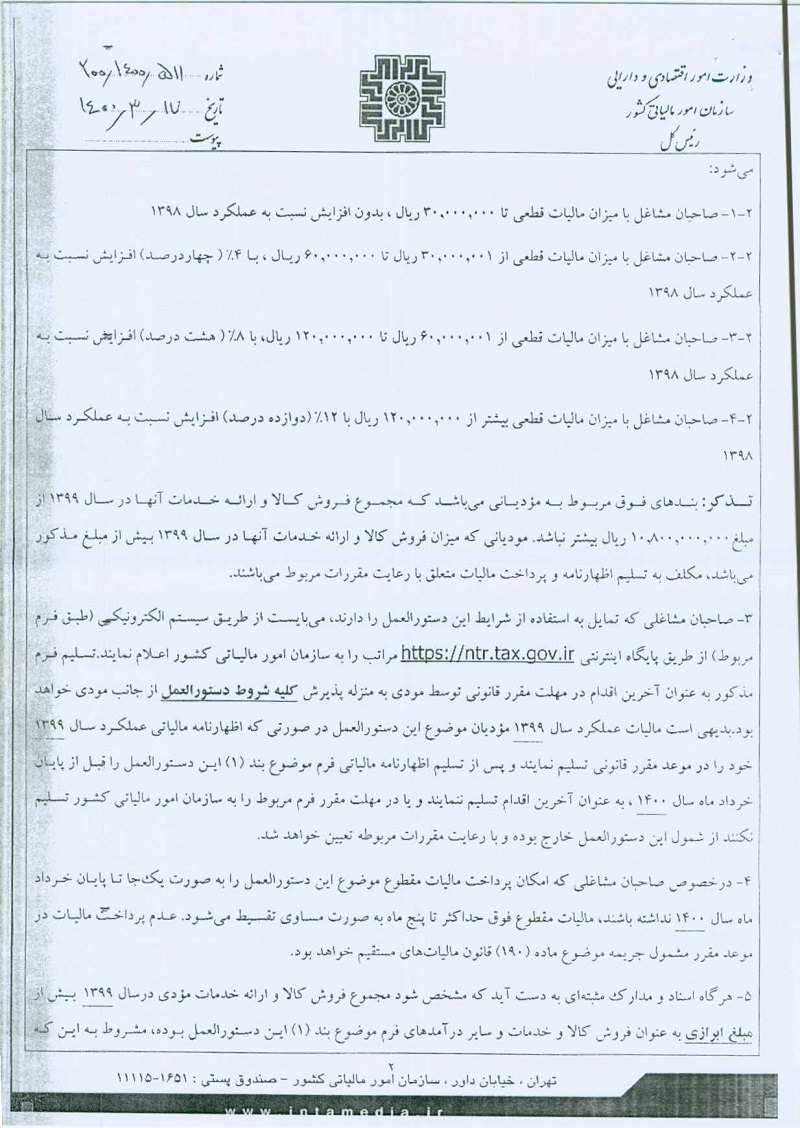 وزارت امور اقتصادی و دارایی
سازمان امور مالیاتی کشور
رئیس کل
شماره ۲۰۰/۱۴۰۰/۵۱۱
تاریخ ۱۴۰۰/۳/۱۷
پیوست
می‌شود:
۲-۱- صاحبان مشاغل با میزان مالیات قطعی تا ۳۰,۰۰۰,۰۰۰ ریال ، بدون افزایش نسبت به عملکرد سال ۱۳۹۸
۲-۲- صاحبان مشاغل با میزان مالیات قطعی از ۳۰,۰۰۰,۰۰۱ ریال تا ۶۰,۰۰۰,۰۰۰ ریال ، با ۴٪ ( چهاردرصد) افزایش نسبت به
عملکرد سال ۱۳۹۸
۲-۳- صاحبان مشاغل با میزان مالیات قطعی از ۶۰,۰۰۰,۰۰۱ ریال تا ۱۲۰,۰۰۰,۰۰۰ ریال، با ۸٪ ( هشت درصد) افزایش نسبت به
عملکرد سال ۱۳۹۸
۲-۴- صاحبان مشاغل با میزان مالیات قطعی بیشتر از ۱۲۰,۰۰۰,۰۰۰ ریال با ۱۲٪ (دوازده درصد) افزایش نسبت به عملکرد سال
۱۳۹۸
تذکر: بندهای فوق مربوط به مؤدیانی می‌باشد که مجموع فروش کالا و ارائه خدمات آنها در سال ۱۳۹۹ از
مبلغ ۱۰,۸۰۰,۰۰۰,۰۰۰ ریال بیشتر نباشد. مودیانی که میزان فروش کالا و ارائه خدمات آنها در سال ۱۳۹۹ بیش از مبلغ مذکور
می‌باشد، مکلف به تسلیم اظهارنامه و پرداخت مالیات متعلق با رعایت مقررات مربوط می‌باشند.
۳- صاحبان مشاغلی که تمایل به استفاده از شرایط این دستورالعمل را دارند، می‌بایست از طریق سیستم الکترونیکی (طبق فرم
مربوط) از طریق پایگاه اینترنتی https://ntr.tax.gov.ir مراتب را به سازمان امور مالیاتی کشور اعلام نمایند.تسلیم فرم
مذکور به عنوان آخرین اقدام در مهلت مقرر قانونی توسط مودی به منزله پذیرش کلیه شروط دستورالعمل از جانب مودی خواهد
بود.بدیهی است مالیات عملکرد سال ۱۳۹۹ مؤدیان موضوع این دستورالعمل در صورتی که اظهارنامه مالیاتی عملکرد سال ۱۳۹۹
خود را در موعد مقرر قانونی تسلیم نمایند و پس از تسلیم اظهارنامه مالیاتی فرم موضوع بند (۱) این دستورالعمل را قبل از پایان
خرداد ماه سال ۱۴۰۰ ، به عنوان آخرین اقدام تسلیم ننمایند و یا در مهلت مقرر فرم مربوط را به سازمان امور مالیاتی کشور تسلیم
نکنند از شمول این دستورالعمل خارج بوده و با رعایت مقررات مربوطه تعیین خواهد شد.
۴- درخصوص صاحبان مشاغلی که امکان پرداخت مالیات مقطوع موضوع این دستورالعمل را به صورت یک‌جا تا پایان خرداد
ماه سال ۱۴۰۰ نداشته باشند، مالیات مقطوع فوق حداکثر تا پنج ماه به صورت مساوی تقسیط می‌شود. عدم پرداخت مالیات در
موعد مقرر مشمول جریمه موضوع ماده (۱۹۰) قانون مالیات‌های مستقیم خواهد بود.
۵- هرگاه اسناد و مدارک مثبته‌ای به دست آید که مشخص شود مجموع فروش کالا و ارائه خدمات مؤدی درسال ۱۳۹۹ بیش از
مبلغ ابرازی به عنوان فروش کالا و خدمات و سایر درآمدهای فرم موضوع بند (۱) این دستورالعمل بوده، مشروط به این که
۲
تهران ، خیابان داور ، سازمان امور مالیاتی کشور - صندوق پستی : ۱۶۵۱-۱۱۱۱۵
www.intamedia.ir